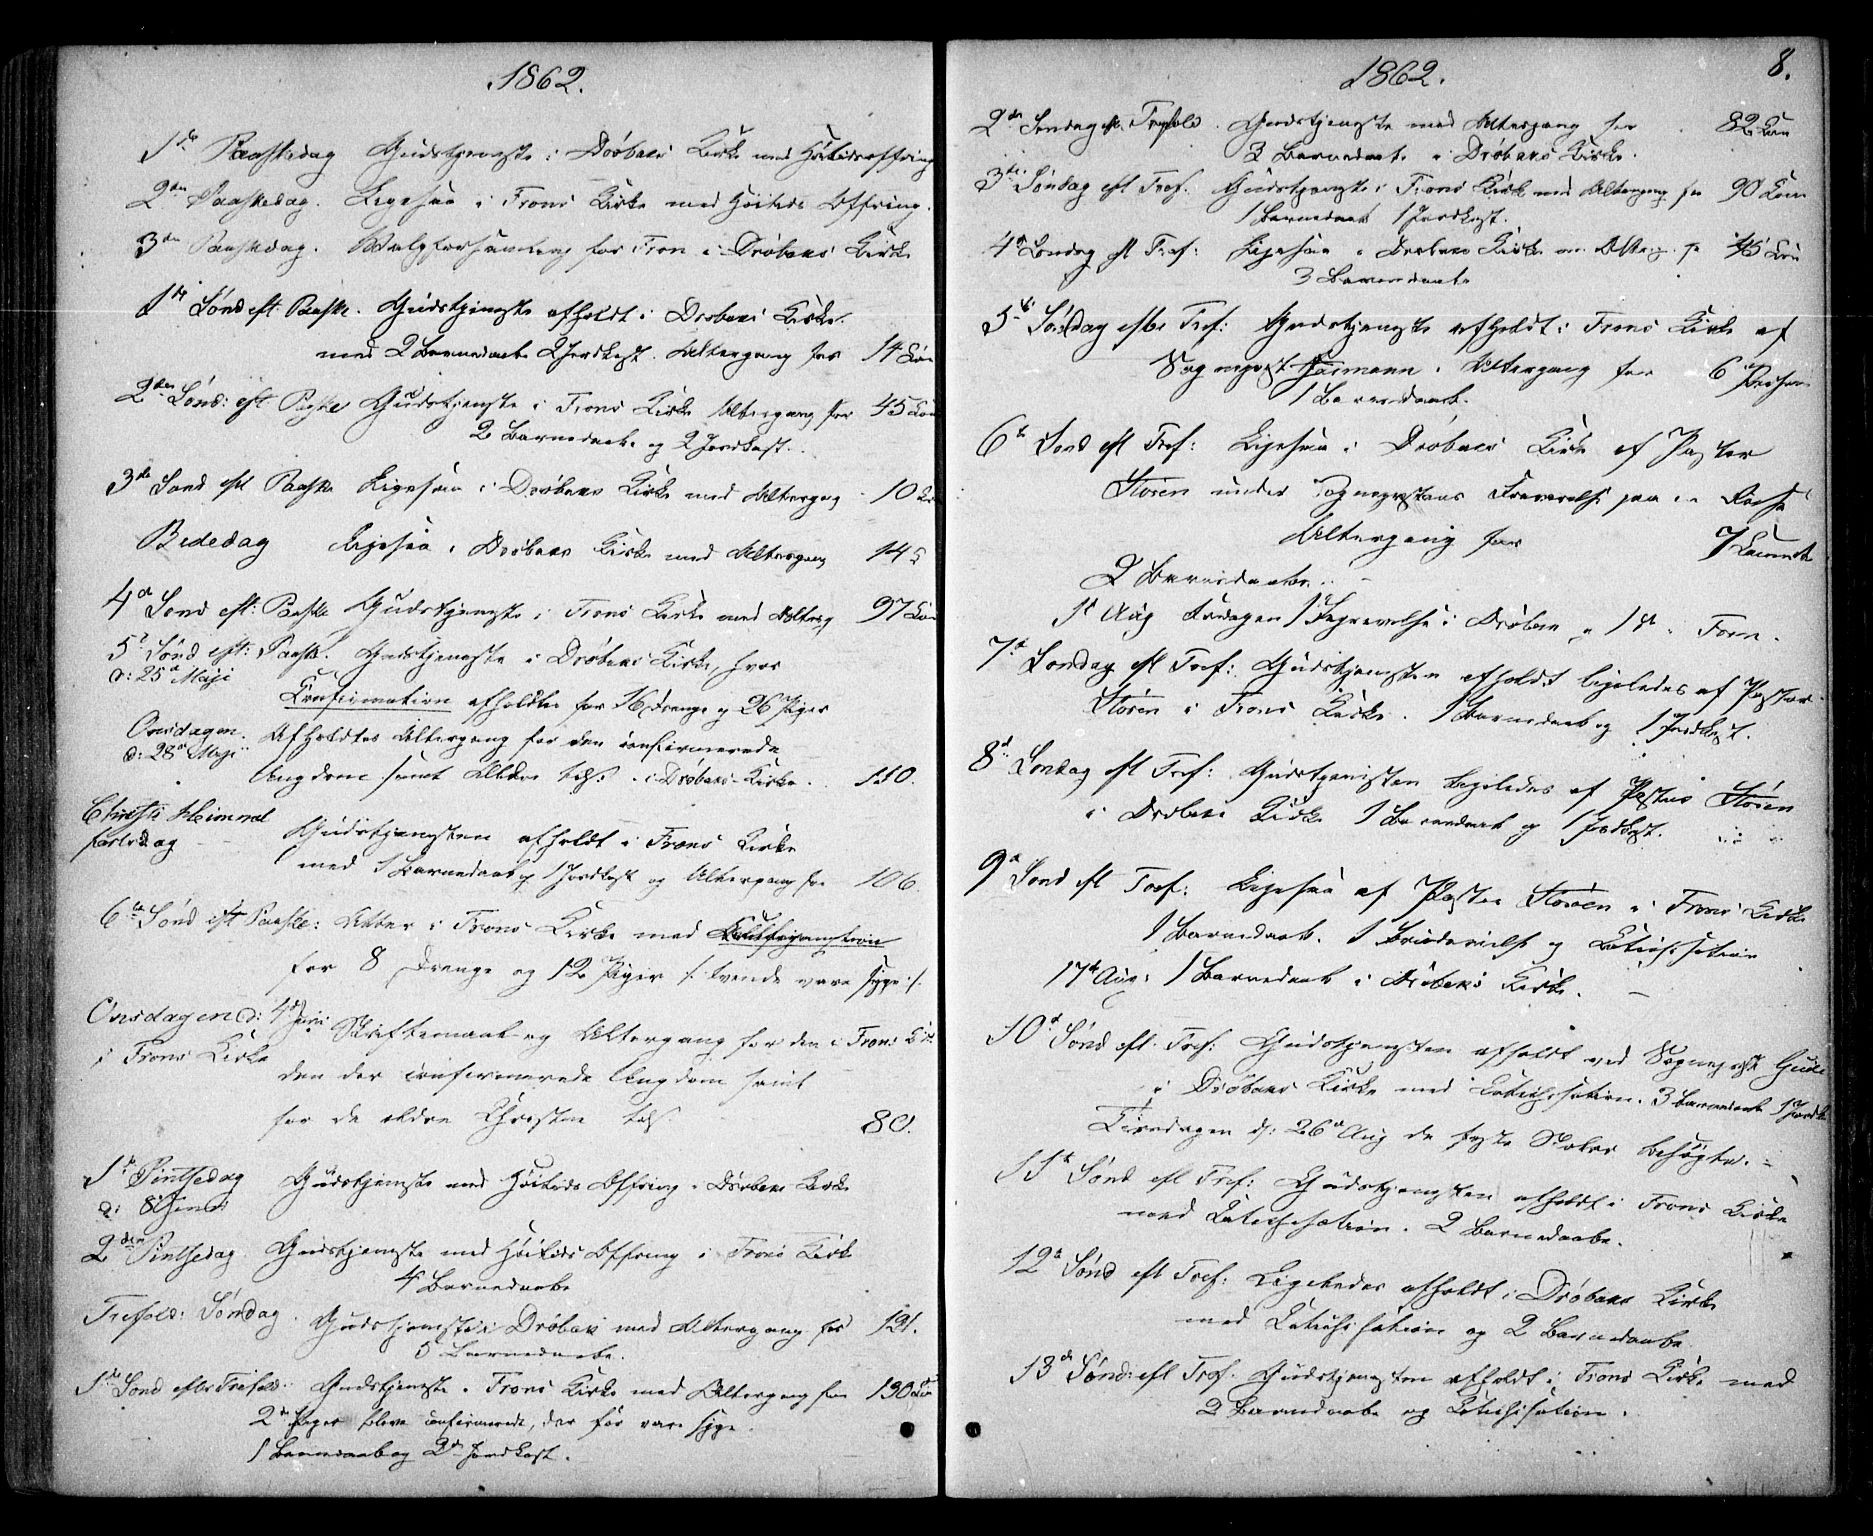 1862.
1ste Paaskedag Gudstjeneste i Drøbaks Kirke med Høitidsoffring
2den Paaskedag. Ligesaa i Frons Kirke med Høitids Offring.
3die Paaskedag. Valgforsamling for Fron i Drøbaks Kirke
1ste Sønd eft: Paaske. Gudstjeneste afholdt i Drøbaks Kirke.
med 2 Barnedaabe 2 Jordkast. Altergang for 14
2den Sønd: eft: Paaske Gudstjeneste i Frons Kirke Altergang for 45
2 Barnedaabe og 2 Jordkast.
3die Sønd eft Paaske Ligesaa i Drøbaks Kirke med Altergang 10
Bededag Ligesaa i Drøbaks Kirke med Altergang 145
4de Sønd eft: Paaske Gudstjeneste i Frons Kirke med Alterg 97
5te Sønd eft: Paaske. Gudstjeneste i Drøbaks Kirke, hvor
d: 25de Maji
Confirmation afholdtes for 16 Drenge og 26 Piger
Onsdagen. Afholdtes Altergang for den confirmerede
d: 28de Maji
Ungdom samt Ældre i Drøbaks Kirke. 110.
Christi Himmel
fartsdag Gudstjenesten afholdt i Frons Kirke
med 1 Barnedaab 1 Jordkast og Altergang for 106.
6te Sønd eft Paaske: i Frons Kirke med Confirmation
for 8 Drenge og 12 Piger /: tvende vare syge :/
Onsdagen d: 4de Juni Skriftemaal og Altergang for den i Frons
i Frons Kirke den der confirmerede Ungdom samt
for de ældre 80.
1ste Pintsedag Gudstjeneste med Høitids Offring i Drøbaks Kirke
d: 8 Juni
2den Pintsedag. Gudstjeneste med Høitids Offring i Frons Kirke
4 Barnedaabe
Trefold: Søndag. Gudstjeneste i Drøbak med Altergang for 121.
5 Barnedaabe.
1ste Sønd efter Trefold: Gudstjeneste i Frons Kirke med Altergang for 130
2de Piger bleve confirmerede, der før vare syge.
1 Barnedaab og 2de Jordkast.
1862. 8.
2den Søndag eft. Trefold. Gudstjeneste med Altergang for 82
3 Barnedaabe i Drøbaks Kirke.
3die Søndag eft Tref. Gudstjeneste i Frons Kirke med Altergang for 90
1 Barnedaab 1 Jordkast.
4de Søndag eft Tref: Ligesaa i Drøbaks Kirke m Alterg. for 45
3 Barnedaabe
5te Søndag efter Tref: Gudstjeneste afholdt i Frons Kirke af
Sogneprest. Altergang for 6 Personer
1 Barnedaab.
6te Sønd eft Tref: Ligesaa i Drøbaks Kirke af Pastor
Støren under Sogneprestens Fraværelse paa en Reise
Altergang for 7
2 Barnedaabe.
1ste Aug i Drøbak
7de Søndag eft Tref: Gudstjenesten afholdt ligeledes af Pastor
Støren i Frons Kirke. 1 Barnedaab og 1 Jordkast.
8de Søndag eft Tref: Gudstjenesten ligeledes af Pastor Støren
i Drøbaks Kirke 1 Barnedaab og 1 Jordkast.
9de Sønd eft Tref: Ligesaa af Pastor Støren i Frons Kirke
1 Barnedaab. 1 og Catechisation
17de Aug: 1 Barnedaab i Drøbaks Kirke.
10de Sønd eft. Tref: Gudstjenesten afholdt ved Sogneprest
i Drøbaks Kirke med Catechisation. 3 Barnedaab 1 Jordk
Tirsdagen d: 26de Aug de faste Skoler besøgte.
11te Sønd eft Tref: Gudstjenesten afholdt i Frons Kirke
med Catechisation. 2 Barnedaabe.
12te Sønd eft Tref: Ligeledes afholdt i Drøbaks Kirke
med Catechisation og 2 Barnedaabe
13de Sønd: eft Tref. Gudstjenesten afholdt i Frons Kirke med
2 Barnedaabe og Catechisation.